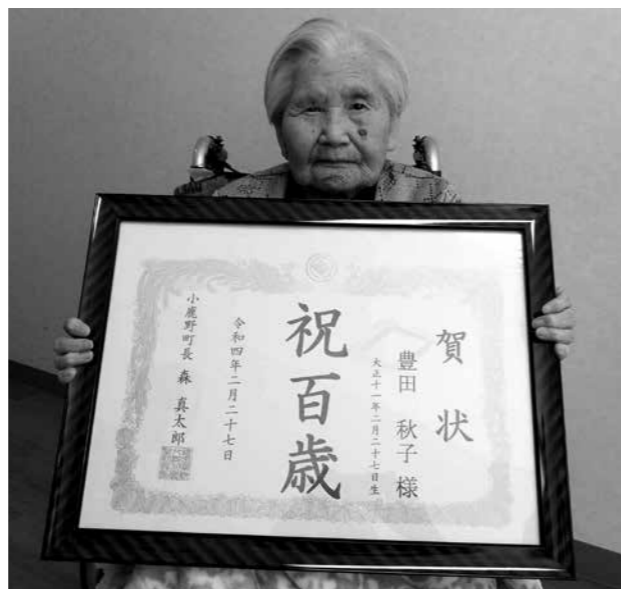 賀状
豊田 秋子 様
大正十一年二月二十七日生
祝百歳
令和四年二月二十七日
小鹿野町長 森 真太郎